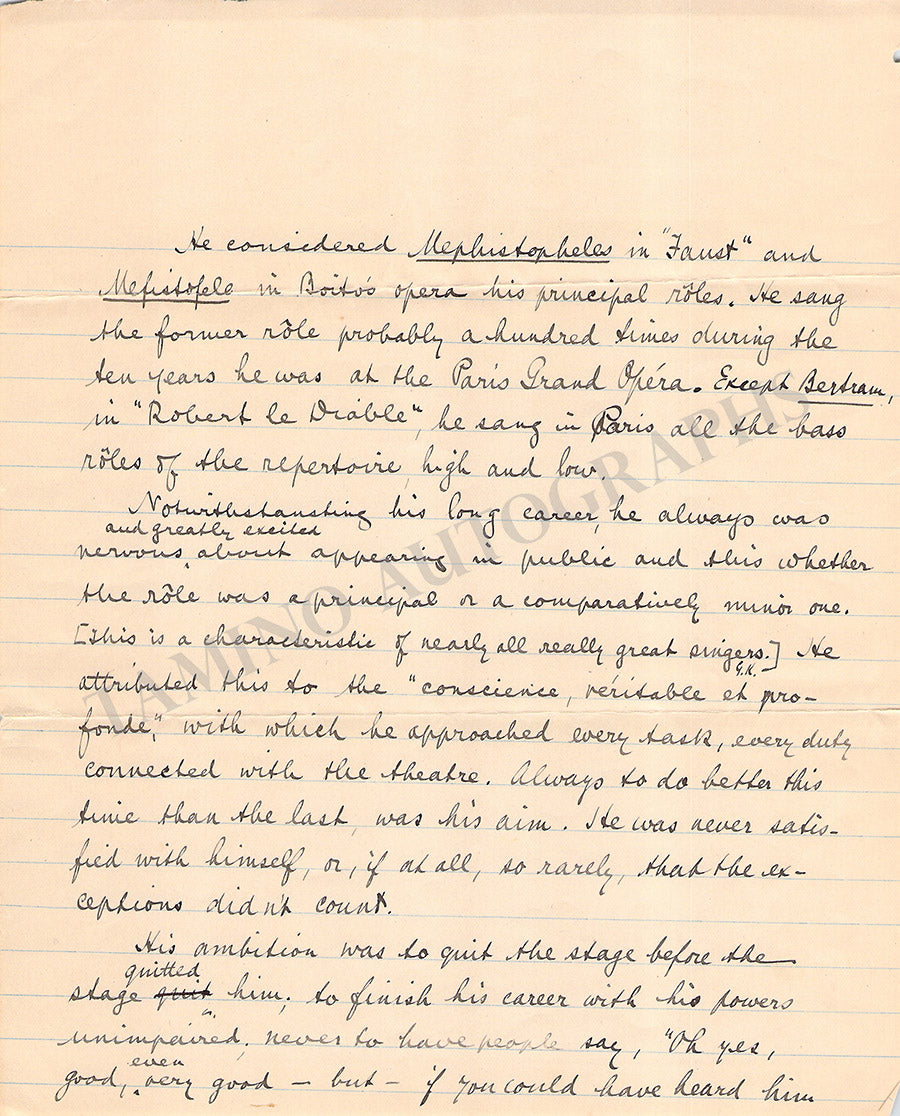 He considered Mephistopheles in "Faust" and
Mefistofele in Boito's opera his principal rôles. He sang
the former rôle probably a hundred times during the
ten years he was at the Paris Grand Opéra. Except Bertram,
in "Robert le Diable", he sang in Paris all the bass
rôles of the repertoire, high and low.
Notwithstansting his long career, he always was
and greatly excited
nervous ‸ about appearing in public and this whether
the rôle was a principal or a comparatively minor one.
[This is a characteristic of nearly all really great singers.] He
G.K.
attributed this to the "conscience, véritable et pro-
fonde," with which he approached every task, every duty
connected with the theatre. Always to do better this
time than the last, was his aim. He was never satis-
fied with himself, or, if at all, so rarely, that the ex-
ceptions didn't count.
His ambition was to quit the stage before the
quitted
stage quit him; to finish his career with his powers
unimpaired; never to have people say, "Oh yes,
even
good, ‸ very good – but – if you could have heard him
TAMINO AUTOGRAPHS